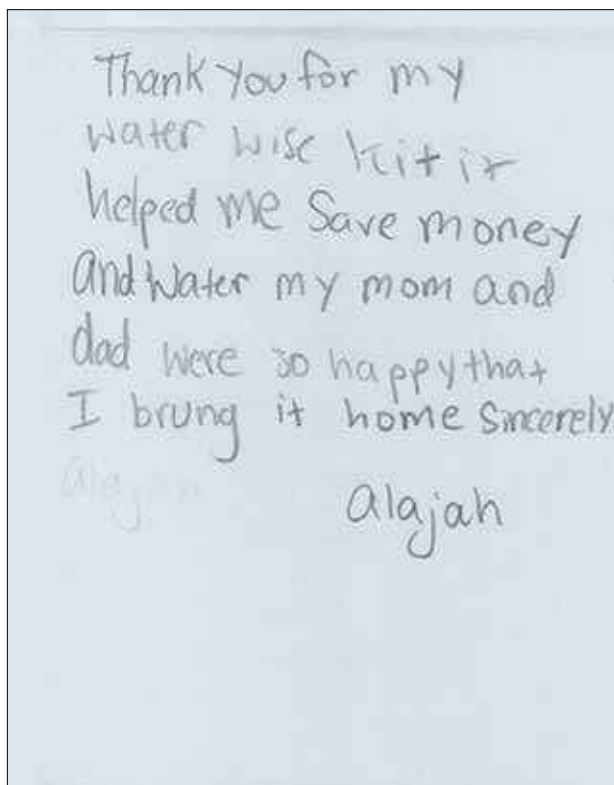 Thank you for my
water wise kit it
helped me save money
and water my mom and
dad were so happy that
I brung it home Sincerely
alajah
alajah